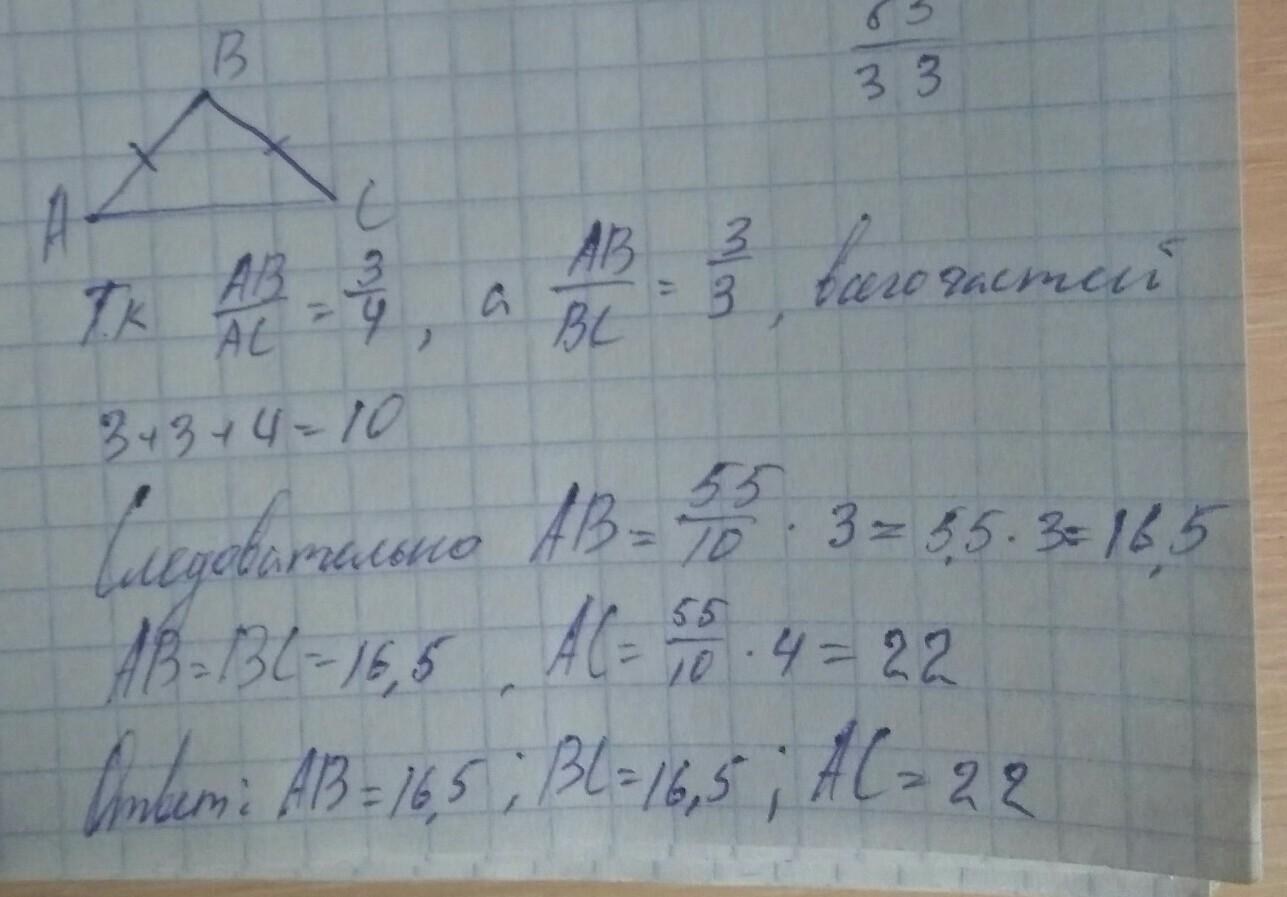 B
3 3
A C
Т.к AB/AC = 3/4, а AB/BC = 3/3, всего частей
3+3+4=10
Следовательно AB = 55/10 · 3 = 5,5 · 3 = 16,5
AB=BC=16,5, AC = 55/10 · 4 = 22
Ответ: AB=16,5; BC=16,5; AC=22